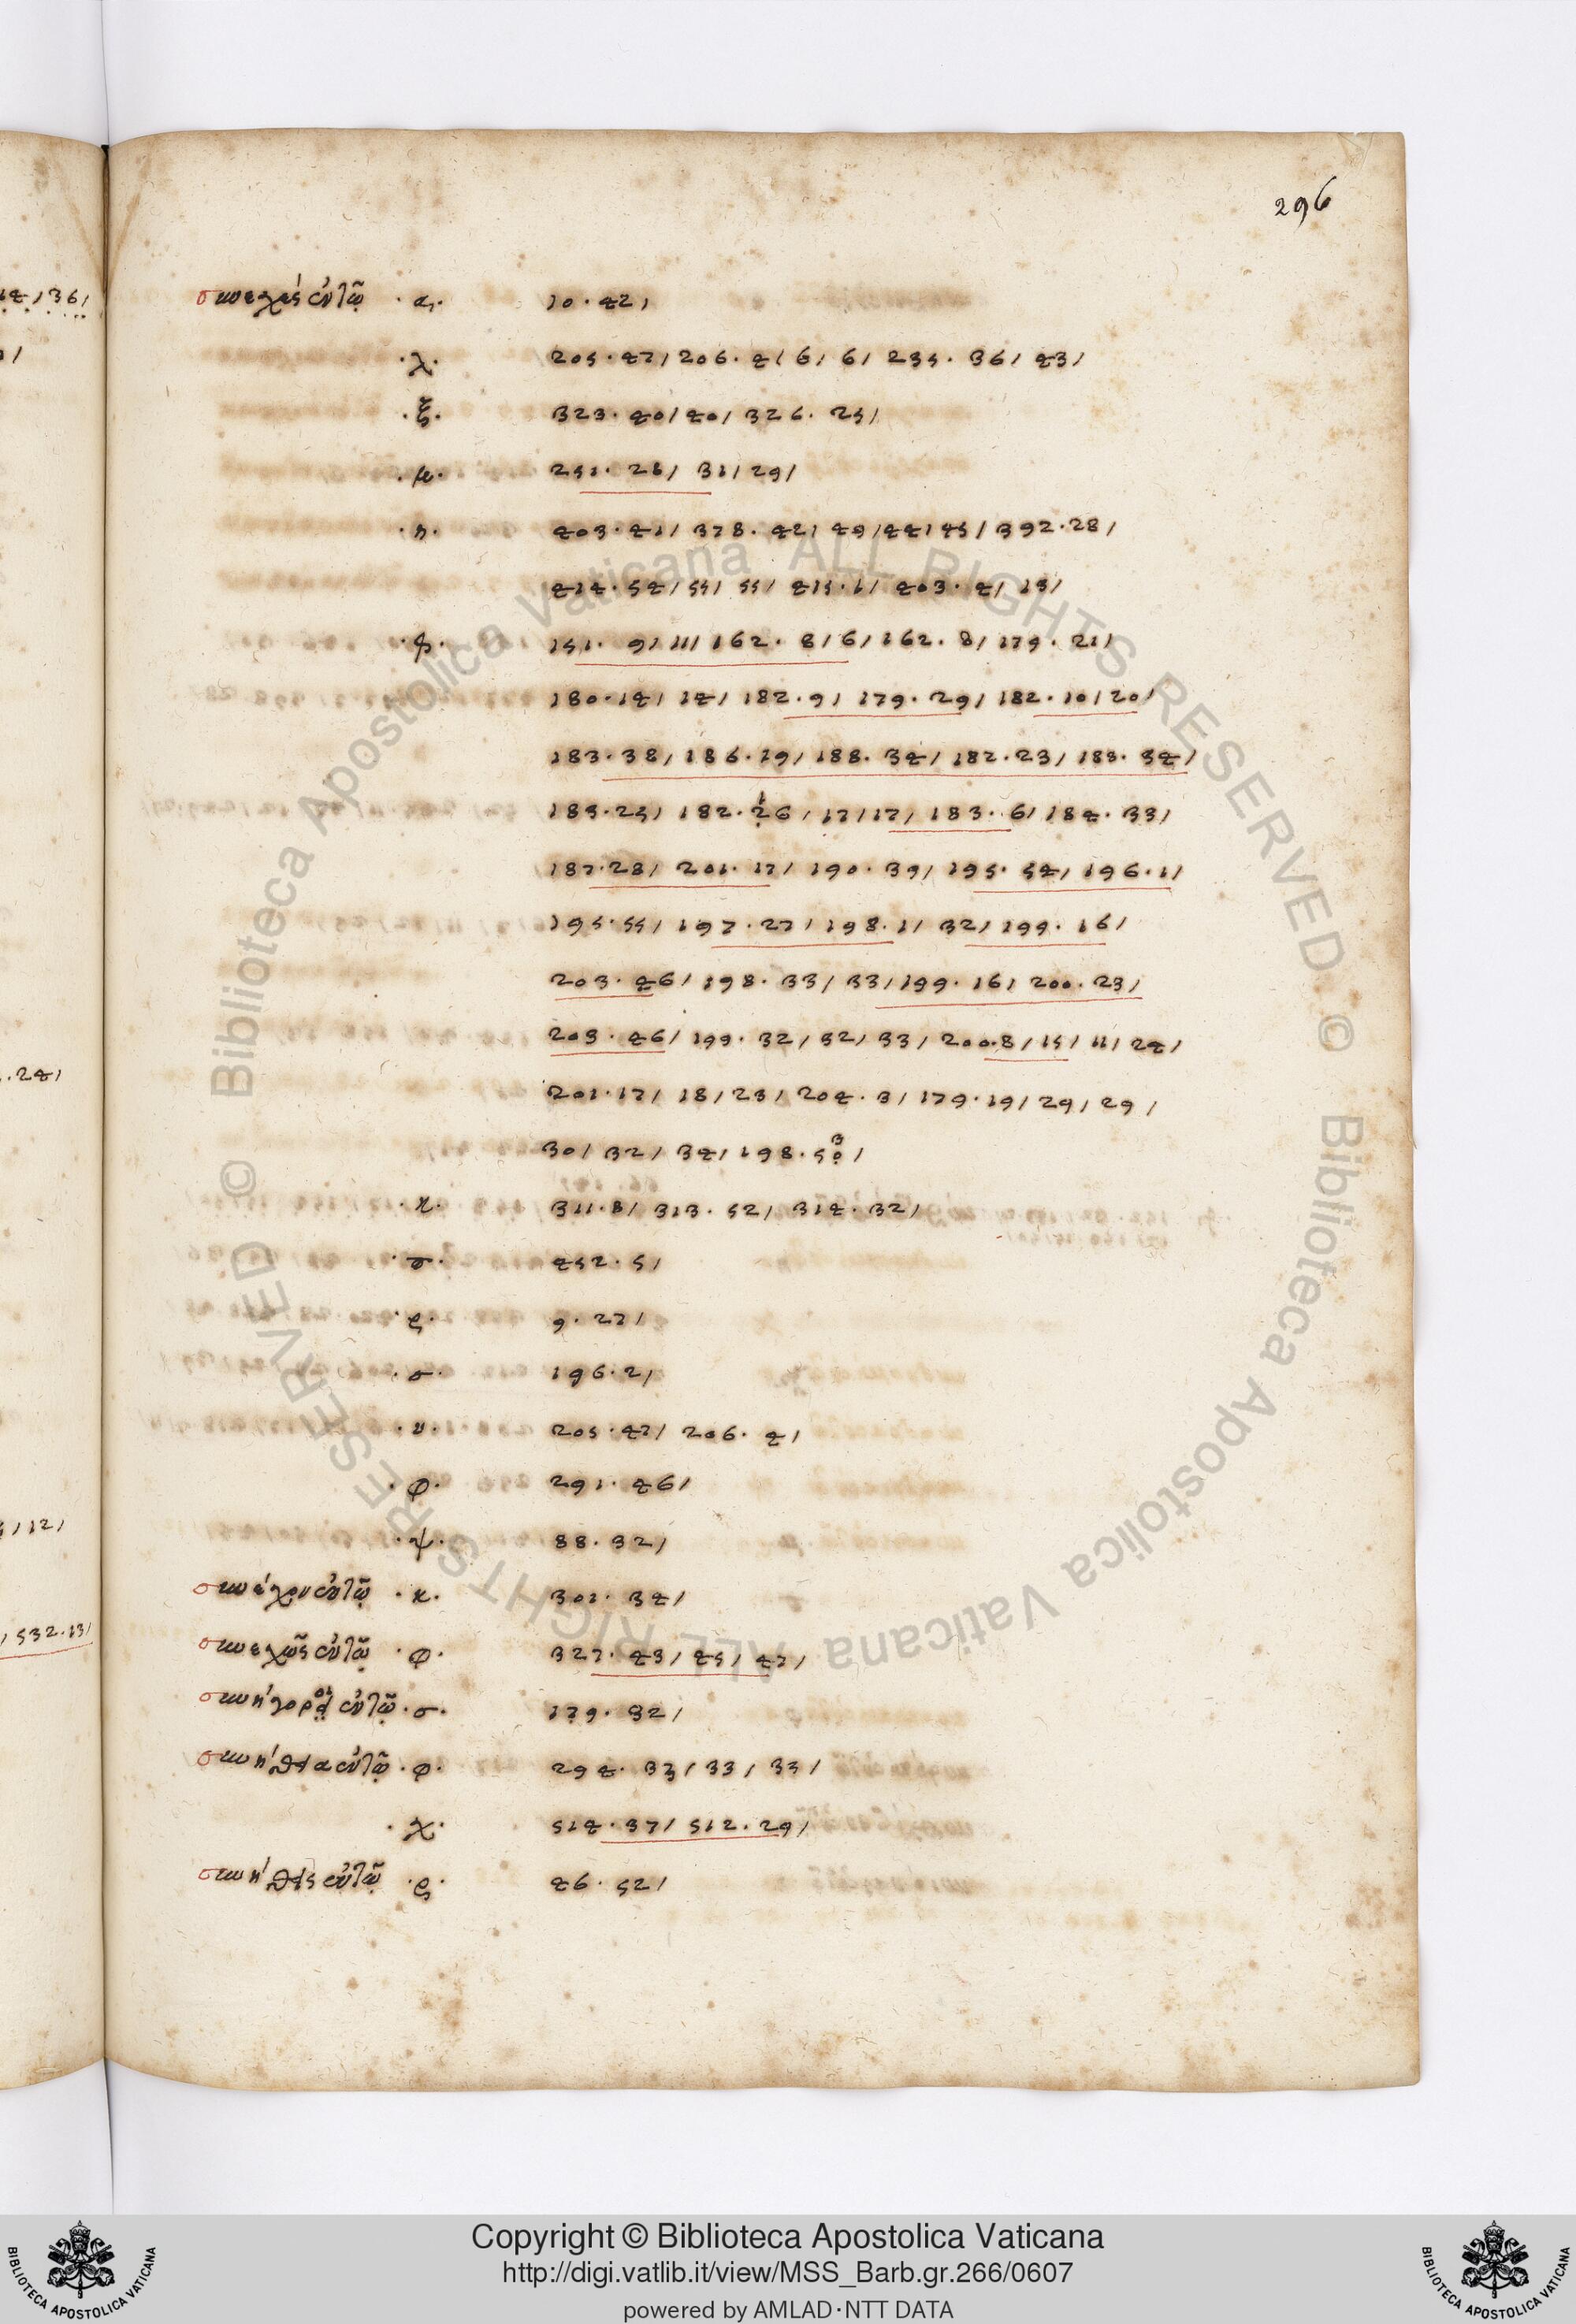 296
συνεχὲς ἐν τῷ · α · 10 · 42 /
· λ · 205 · 47 / 206 · 4 / 6 / 6 / 235 · 36 / 43 /
· ξ · 323 · 40 / 40 / 326 · 25 /
251 · 28 / 31 / 29 /
· η · 403 · 41 / 378 · 42 / 49 / 44 / 45 / 392 · 28 /
414 · 54 / 55 / 55 / 415 · 1 / 403 · 4 / 18 /
151 · 9 / 11 / 162 · 8 / 6 / 162 · 8 / 179 · 21 /
180 · 14 / 14 / 182 · 9 / 179 · 29 / 182 · 10 / 20 /
183 · 38 / 186 · 19 / 188 · 34 / 182 · 23 / 183 · 34 /
185 · 25 / 182 · 26 / 17 / 17 / 183 · 6 / 184 · 33 /
187 · 28 / 201 · 17 / 190 · 39 / 195 · 54 / 196 · 1 /
195 · 55 / 197 · 27 / 198 · 1 / 32 / 199 · 16 /
203 · 46 / 198 · 33 / 33 / 199 · 16 / 200 · 23 /
203 · 46 / 199 · 32 / 32 / 33 / 200 · 8 / 15 / 11 / 24 /
201 · 17 / 18 / 23 / 204 · 3 / 179 · 19 / 29 / 29 /
30 / 32 / 34 / 198 · 53 /
· κ · 311 · 8 / 313 · 52 / 314 · 32 /
452 · 5 /
· ρ · 9 · 27 /
· σ · 196 · 2 /
· υ · 205 · 47 / 206 · 4 /
· φ · 291 · 46 /
· ψ · 88 · 32 /
συνέχον ἐν τῷ · κ · 301 · 34 /
συνεχῶς ἐν τῷ · φ · 327 · 43 / 45 / 47 /
συνήγοροι ἐν τῷ · σ · 179 · 32 /
συνήθεια ἐν τῷ · φ · 294 · 33 / 33 / 33 /
· χ · 514 · 37 / 512 · 29 /
συνήθεις ἐν τῷ · ρ · 46 · 52 /
Copyright © Biblioteca Apostolica Vaticana
http://digi.vatlib.it/view/MSS_Barb.gr.266/0607
powered by AMLAD·NTT DATA